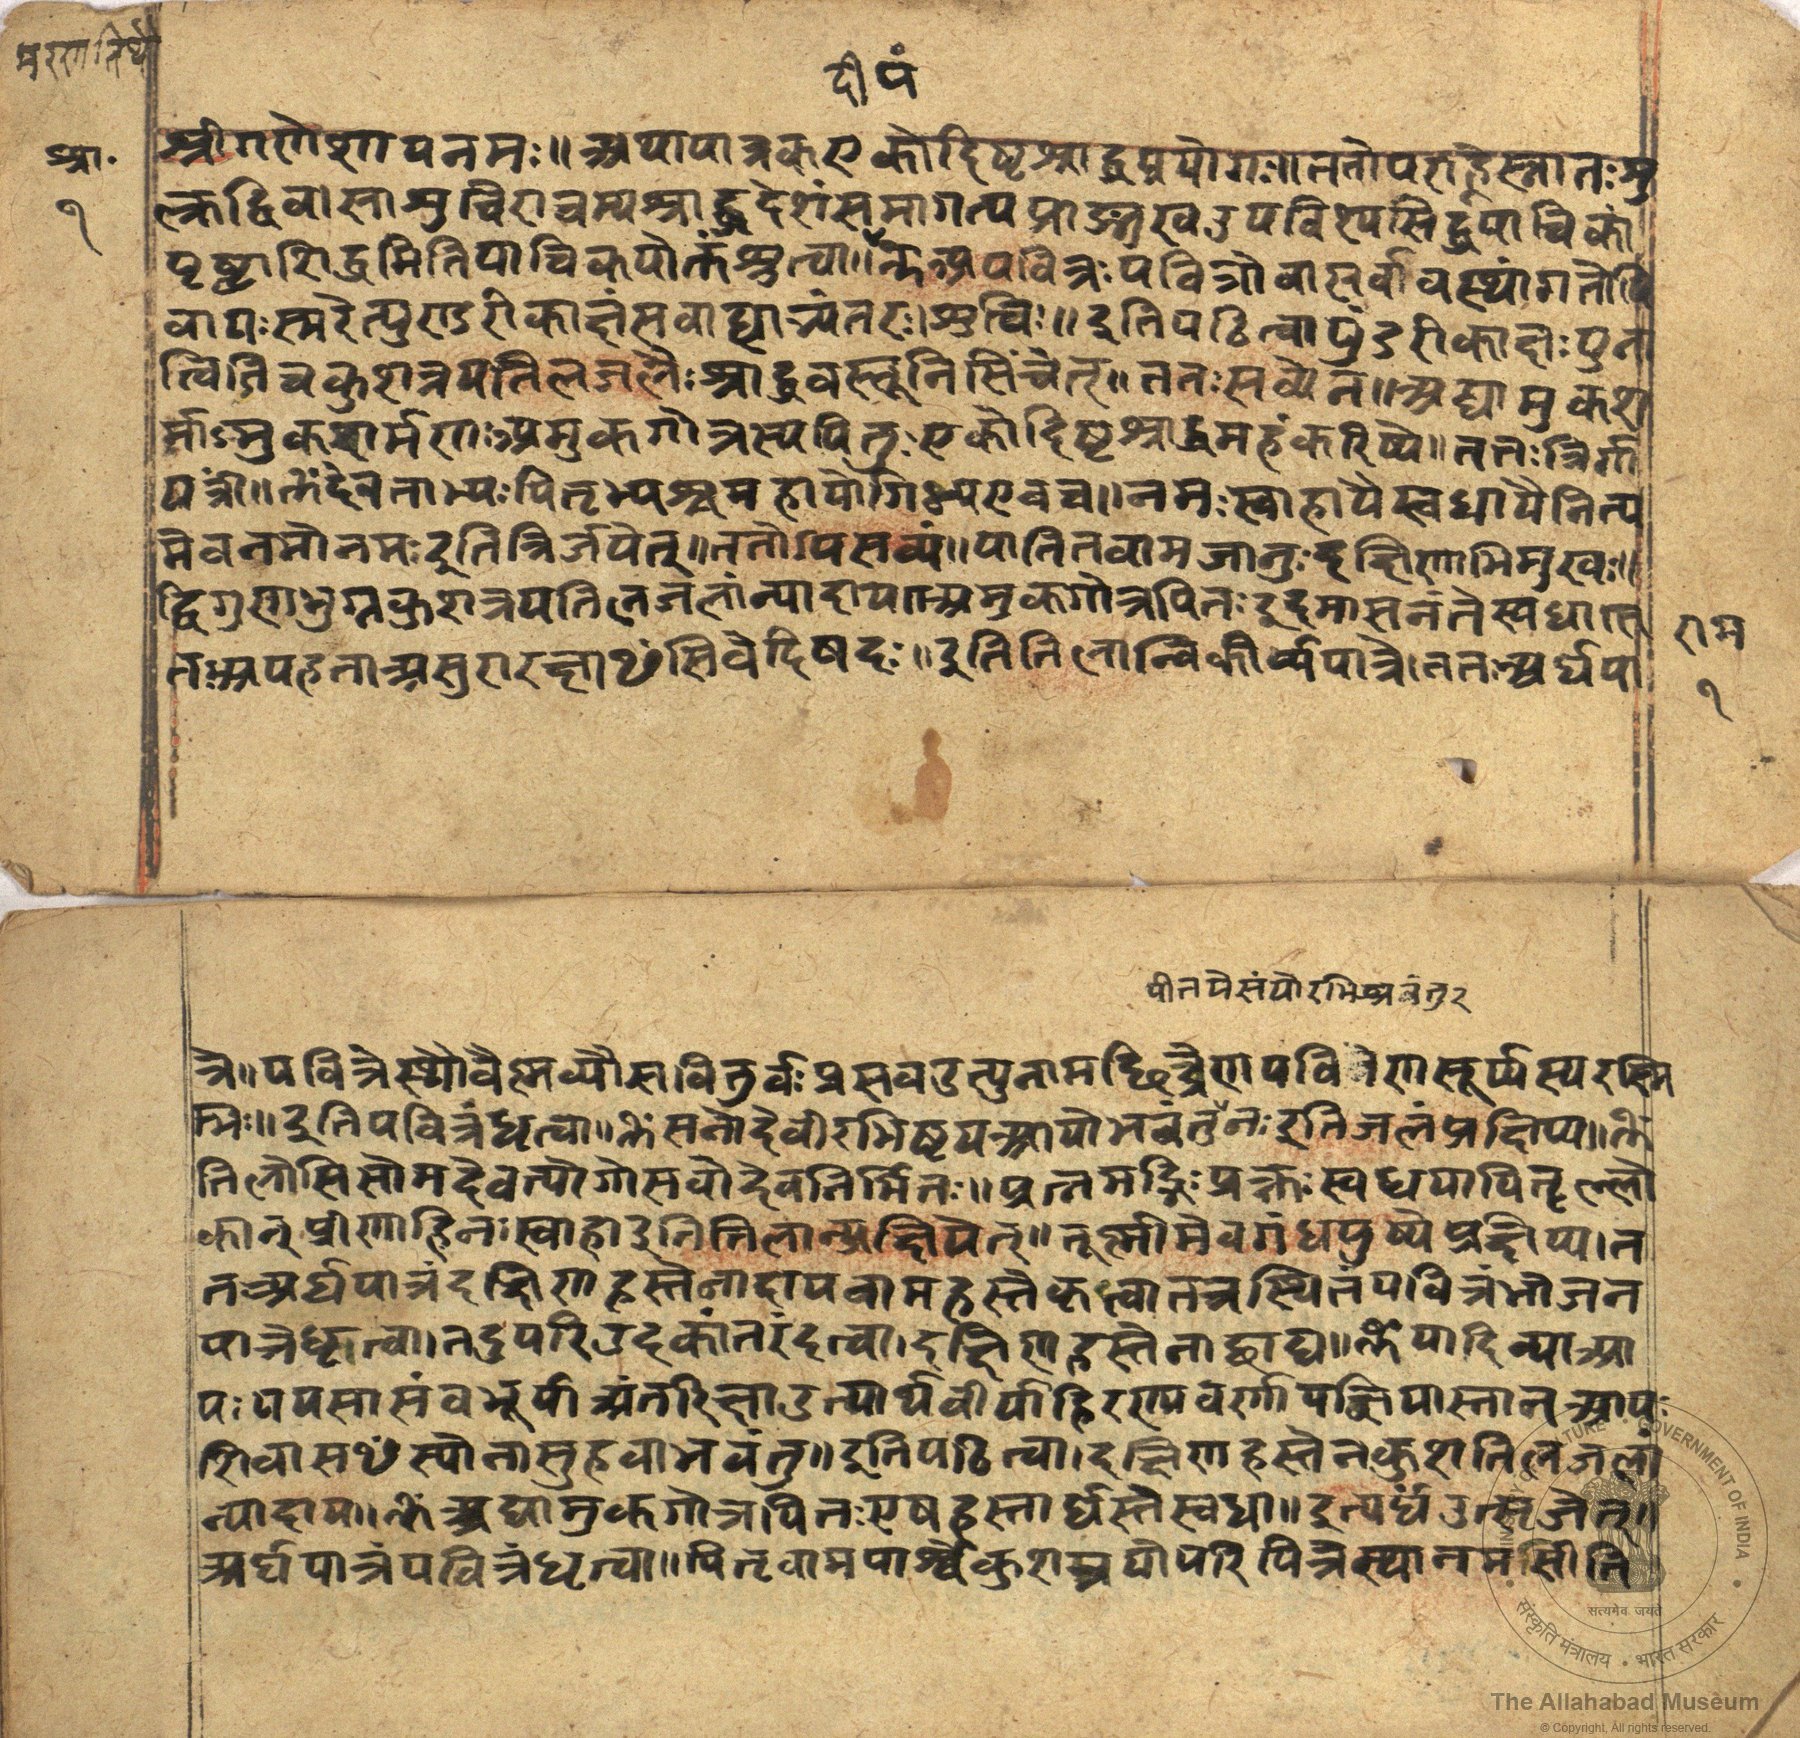 दीपं
श्रा.
१
श्रीगणेशायनमः॥ अथापात्रकएकोदिष्टश्राद्धप्रयोगः॥ततोपराह्णेस्नातःशु
त्क्लद्विवासाशुचिराचम्यश्राद्धदेशंसमागत्यप्राङ्मुखउपविश्यसिद्धपाचिकां
पृष्ट्वाशिद्धमितिपाचिकयोक्तंश्रुत्वा॥ॐअपवित्रःपवित्रोवासर्वावस्थांगतोपि
वायःस्मरेत्पुण्डरीकाक्षंसवाह्याभ्यंतरःशुचिः॥इतिपठित्वापुंडरीकाक्षःपुना
त्वितिचकुशत्रयतिलजलैःश्राद्धवस्तूनिसिंचेत्॥ततःसव्येन॥अद्यामुकश
र्माऽमुकशर्मणःअमुकगोत्रस्यपितुःएकोदिष्टश्राद्धमहंकरिष्ये॥ततःत्रिर्गा
यत्री॥ॐदेवताभ्यःपितृभ्यश्चमहायोगिभ्यएवच॥नमःस्वाहायैस्वधायैनित्य
मेवनमोनमःइतित्रिर्जपेत्॥ततोपसव्यं॥पातितवामजानुःदक्षिणाभिमुखः॥
द्विगुणभुग्नकुशत्रयतिलजलान्यादायअमुकगोत्रपितःइदमासनंतेस्वधा॥
ततःअपहताअसुरारक्षाᳪसिवेदिषदः॥इतितिलान्विकीर्य्यपात्रे।ततःअर्घपा
राम
१
पीतयेसंयोरभिस्रवंतु२
त्रे॥पवित्रेस्थोवैष्णव्यौसवितुर्वःप्रसवउत्पुनामच्छिद्रेणपवित्रेणसूर्य्यस्यरस्मि
भिः॥इतिपवित्रंधृत्वा॥ॐसनोदेवीरभिष्टयआपोभवंतुनःइतिजलंप्रक्षिप्य॥ॐ
तिलोसिसोमदेवत्योगोसवोदेवनिर्मितः॥प्रत्नमद्भिःप्रक्तःस्वधयापितृल्लो
कान्प्रीणाहिनःस्वाहाइतितिलान्प्रक्षिपेत्॥तूष्णीमेवगंधपुष्पेप्रक्षिप्य।त
तःअर्घपात्रंदक्षिणहस्तेनादायवामहस्तेकृत्वातत्रस्थितंपवित्रंभोजन
पात्रेधृत्वा।तदुपरिउदकांतरंदत्वा।दक्षिणहस्तेनाछाद्य॥ॐयादिव्याआ
पःपयसासंवभूर्याअंतरिक्षाउत्पार्थवीर्याहिरण्यवर्णायज्ञियास्तानआपः
शिवासᳪस्योनासुहवाभवंतु॥इतिपठित्वा।दक्षिणहस्तेनकुशतिलजलां
न्यादाय॥ॐअद्यामुकगोत्रपितःएषहस्तार्घस्तेस्वधा॥इत्यर्घंउत्सृजेत्॥
अर्घपात्रंपवित्रंधृत्वा॥पितृवामपार्श्वेकुशत्रयोपरिपित्रेस्थानमसीति
MINISTRY OF CULTURE GOVERNMENT OF INDIA
सत्यमेव जयते
संस्कृति मंत्रालय • भारत सरकार
The Allahabad Museum
© Copyright, All rights reserved.